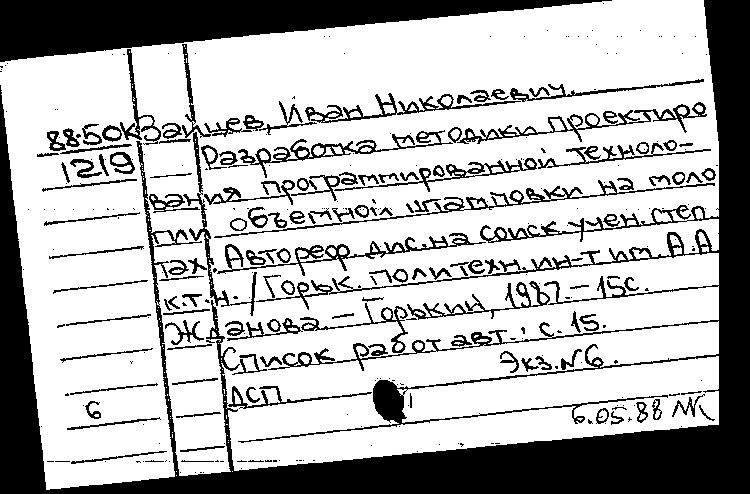 88-50к Зайцев, Иван Николаевич.
1219 Разработка методики проектиро
вания программированной техноло-
гии объемной штамповки на моло
тах: Автореф. дис. на соиск. учен. степ.
к.т.н. / Горьк. политехн. ин-т им. А.А
Жданова. – Горький, 1987. – 15с.
Список работ авт.: с. 15.
Экз. N6.
6 ДСП.
6.05.88